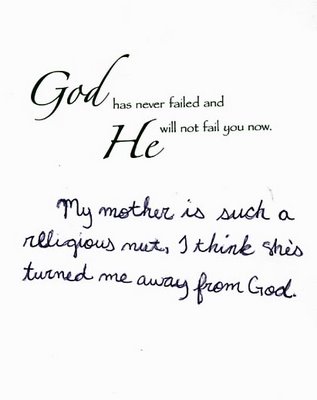 God has never failed and
He will not fail you now.
My mother is such a
religious nut, I think she's
turned me away from God.